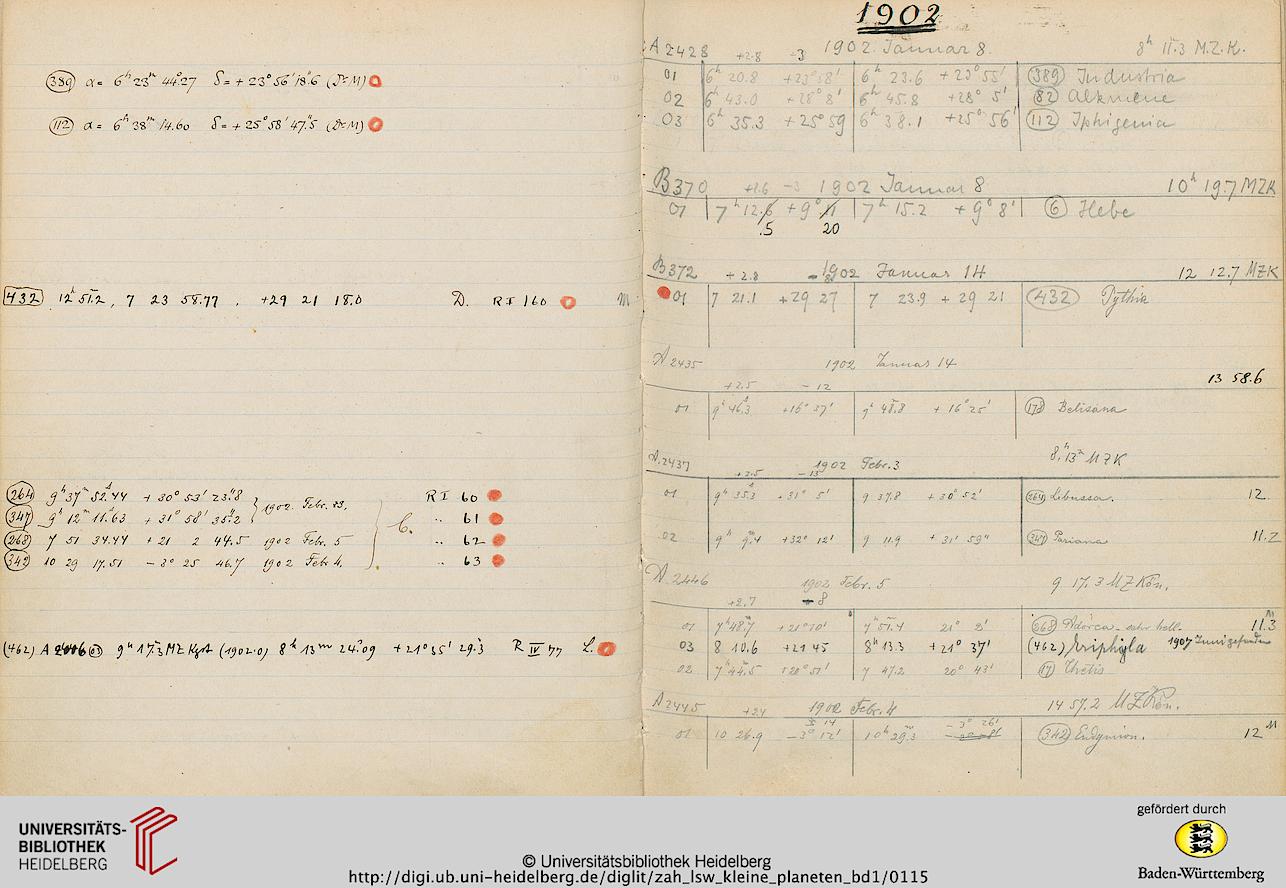 (389) α = 6h 23m 44s.27 δ = + 23° 56' 18".6 (Dr M)
(112) α = 6h 38m 14.60 δ = + 25° 58' 47".5 (Dr M)
432 12h 51.2, 7 23 58.77, +29 21 18.0 D. R I 160
(264) 9h 37m 52s.44 + 30° 53' 23".8
(347) 9h 12m 11s.63 + 31° 58' 35".2 1902 Febr. 3.
(268) 7 51 34.44 + 21 2 44.5 1902 Febr. 5
(342) 10 29 17.51 - 3° 25 46.7 1902 Febr 4.
C. R I 60
" 61
" 62
" 63
(462) A 2446 03 9h 17.3 MZ Kgst (1902.0) 8h 13m 24s.09 + 21° 35' 29".3 R IV 77 L.
1902
A 2428 +2.8 -3 1902 Januar 8. 8h 11.3 M.Z.K.
01 6h 20.8 +23° 58' 6h 23.6 +23° 55' (389) Industria
02 6h 43.0 +28° 8' 6h 45.8 +28° 5' (82) Alkmene
03 6h 35.3 +25° 59 6h 38.1 +25° 56' (112) Iphigenia
B 370 +2.6 -3 1902 Januar 8 10h 19.7 MZK
01 7h 12.6 +9° 11 7h 15.2 +9° 8' (6) Hebe
.5 20
B 372 +2.8 1902 Januar 14 12 12.7 MZK
01 7 21.1 +29 27 7 23.9 + 29 21 (432) Pythia
A 2435 1902 Januar 14
+2.5 - 12 13 58.6
01 9h 46.3 +16° 37' 9h 48.8 + 16° 25' (178) Belisana
A. 2437 1902 Febr. 3 8h 13m MZK
+2.5 - 13
01 9h 35.3 +31° 5' 9 37.8 + 30° 52' (264) Libussa. 12.
02 9h 9.4 +32° 12' 9 11.9 + 31° 59" (347) Pariana 11.2
A 2446 1902 Febr. 5 9 17.3 MZ Kön.
+2.7 - 8
01 7h 48.7 +21° 10' 7h 51.4 21° 2' (268) Adorea - sehr hell - 11.3 M
03 8 10.6 +21 45 8h 13.3 +21° 37' (462) Eriphyla 1907 Juni gefunden
02 7h 44.5 +20° 51' 7 47.2 20° 43' (17) Thetis
A 2445 +2.4 1902 Febr. 4 14 57.2 MZ Kön.
01 10 26.9 - 3° 12' 10h 29.3 - 3° 26' (342) Endymion. 12 M
UNIVERSITÄTS-
BIBLIOTHEK
HEIDELBERG
© Universitätsbibliothek Heidelberg
http://digi.ub.uni-heidelberg.de/diglit/zah_lsw_kleine_planeten_bd1/0115
gefördert durch
Baden-Württemberg